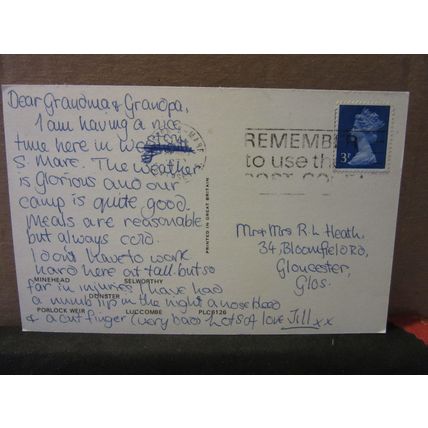 Dear Grandma & Grandpa,
I am having a nice
time here in Weston
S Mare. The weather
is glorious and our
camp is quite good.
Meals are reasonable
but always cold.
I dont have to work
hard here at tall. but so
far in injuries I have had
a numb lip in the night a nose bleed
& a cut finger (very bad) lots of love Jill xx
MINEHEAD SELWORTHY
DUNSTER
PORLOCK WEIR LUCCOMBE PLC6126
PRINTED IN GREAT BRITAIN
REMEMBER
to use the
POST CODE
3P
Mr & Mrs R L Heath.
34, Bloomfield RD,
Gloucester,
Glos.